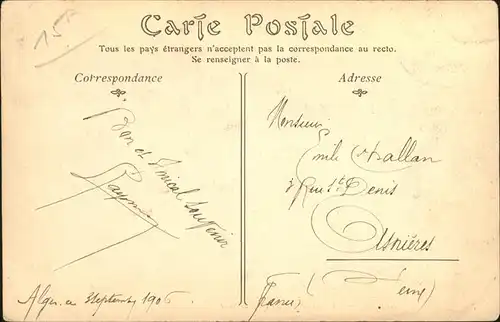 15
Carte Postale
Tous les pays étrangers n'acceptent pas la correspondance au recto.
Se renseigner à la poste.
Correspondance
Adresse
Bon et Amical Souvenir
Monsieur
Emile Challan
3 Rue St Denis
Asnières
France (Seine)
Alger le Septembre 1906